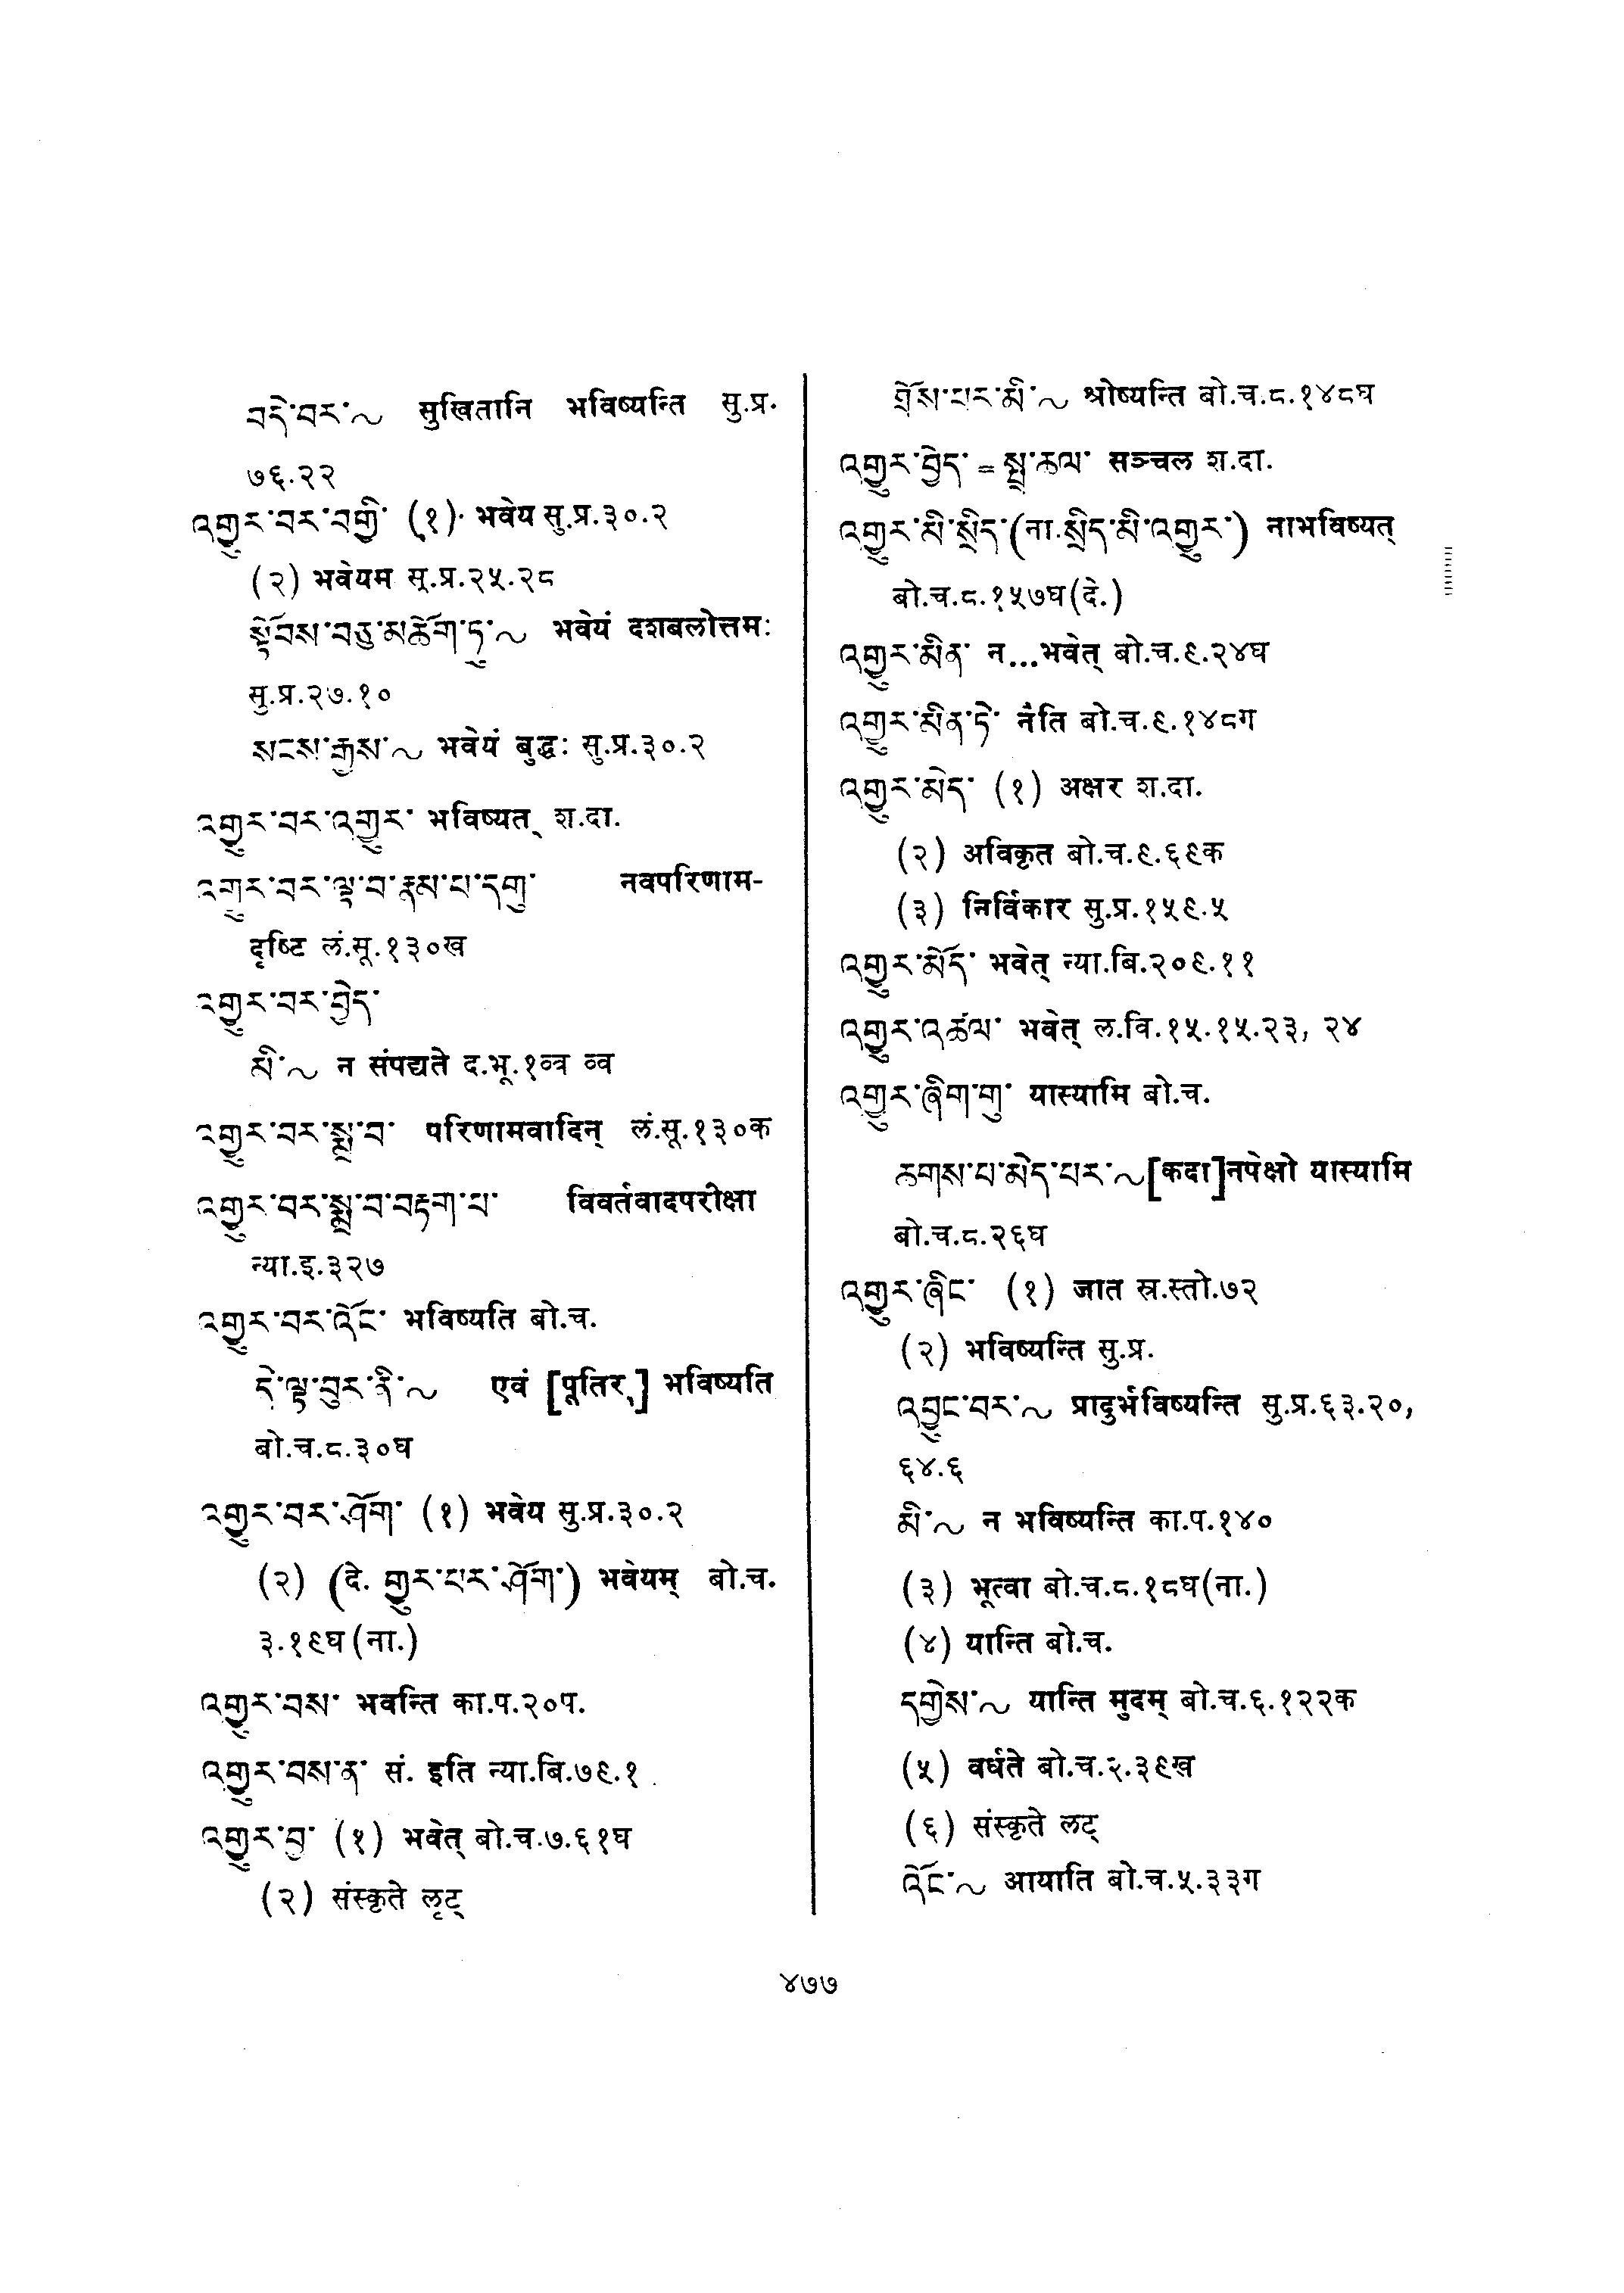 བདེ་བར་~ सुखितानि भविष्यन्ति सु.प्र.
७६.२२
འགྱུར་བར་བགྱི་ (१) भवेय सु.प्र.३०.२
(२) भवेयम सु.प्र.२५.२८
སྟོབས་བཅུ་མཆོག་ཏུ་~ भवेयं दशबलोत्तमः
सु.प्र.२७.१०
སངས་རྒྱས་~ भवेयं बुद्धः सु.प्र.३०.२
འགྱུར་བར་འགྱུར་ भविष्यत् श.दा.
འགྱུར་བར་ལྟ་བ་རྣམ་པ་དགུ་ नवपरिणाम-
दृष्टि लं.सू.१३०ख
འགྱུར་བར་བྱེད་
མི་~ न संपद्यते द.भू.१व्त्र व्व
འགྱུར་བར་སྨྲ་བ་ परिणामवादिन् लं.सू.१३०क
འགྱུར་བར་སྨྲ་བ་བརྟག་པ་ विवर्तवादपरीक्षा
न्या.इ.३२७
འགྱུར་བར་འོང་ भविष्यति बो.च.
དེ་ལྟ་བུར་ནི་~ एवं [पूतिर्] भविष्यति
बो.च.८.३०घ
འགྱུར་བར་ཤོག་ (१) भवेय सु.प्र.३०.२
(२) (दे. གྱུར་པར་ཤོག་) भवेयम् बो.च.
३.१९घ(ना.)
འགྱུར་བས་ भवन्ति का.प.२०प.
འགྱུར་བས་ན་ सं. इति न्या.बि.७९.१
འགྱུར་བུ་ (१) भवेत् बो.च.७.६१घ
(२) संस्कृते लृट्
གྲོས་པར་མི་~ श्रोष्यन्ति बो.च.८.१४८घ
འགྱུར་བྱེད་ = སྤྲ་ཆལ་ सञ्चल श.दा.
འགྱུར་མི་སྲིད་(ना.སྲིད་མི་འགྱུར་) नाभविष्यत्
बो.च.८.१५७घ(दे.)
འགྱུར་མིན་ न...भवेत् बो.च.९.२४घ
འགྱུར་མིན་ཏེ་ नैति बो.च.९.१४८ग
འགྱུར་མེད་ (१) अक्षर श.दा.
(२) अविकृत बो.च.९.६९क
(३) निर्विकार सु.प्र.१५९.५
འགྱུར་མོད་ भवेत् न्या.बि.२०९.११
འགྱུར་འཚལ་ भवेत् ल.वि.१५.१५.२३, २४
འགྱུར་ཞིག་གུ་ यास्यामि बो.च.
ཆགས་པ་མེད་པར་~[कदा]नपेक्षो यास्यामि
बो.च.८.२६घ
འགྱུར་ཞིང་ (१) जात स्र.स्तो.७२
(२) भविष्यन्ति सु.प्र.
འབྱུང་བར་~ प्रादुर्भविष्यन्ति सु.प्र.६३.२०,
६४.६
མི་~ न भविष्यन्ति का.प.१४०
(३) भूत्वा बो.च.८.१८घ(ना.)
(४) यान्ति बो.च.
དགྱེས་~ यान्ति मुदम् बो.च.६.१२२क
(५) वर्धते बो.च.२.३९ख
(६) संस्कृते लट्
འོང་~ आयाति बो.च.५.३३ग
४७७